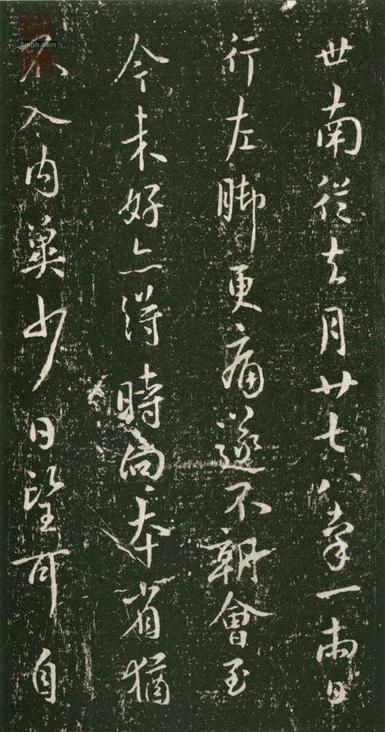 世南從去月廿七八率一兩日
行左脚更痛遂不朝會至
今未好亦得時向本省猶
不入内冀少日望可自